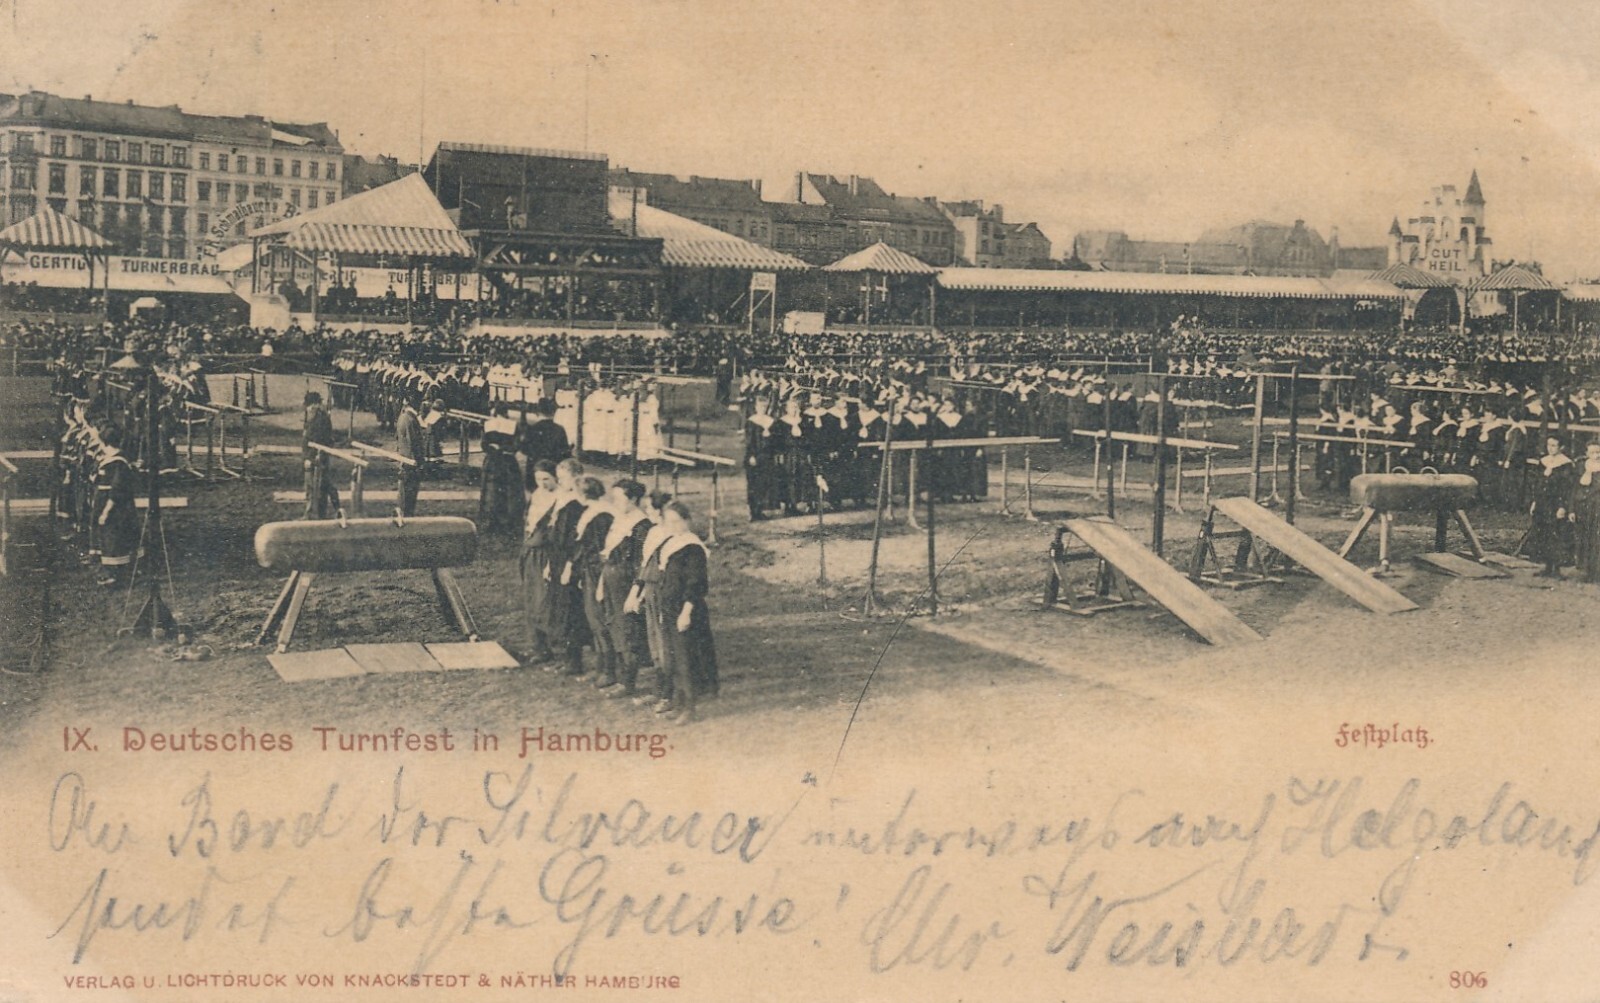 GERTIG
TURNERBRÄU
TURNERBRÄU
GUT
HEIL.
IX. Deutsches Turnfest in Hamburg.
Festplatz.
An Bord der Silvaner unterwegs nach Helgoland
sendet beste Grüsse! Chr. Weisbart.
VERLAG U. LICHTDRUCK VON KNACKSTEDT & NÄTHER HAMBURG
806